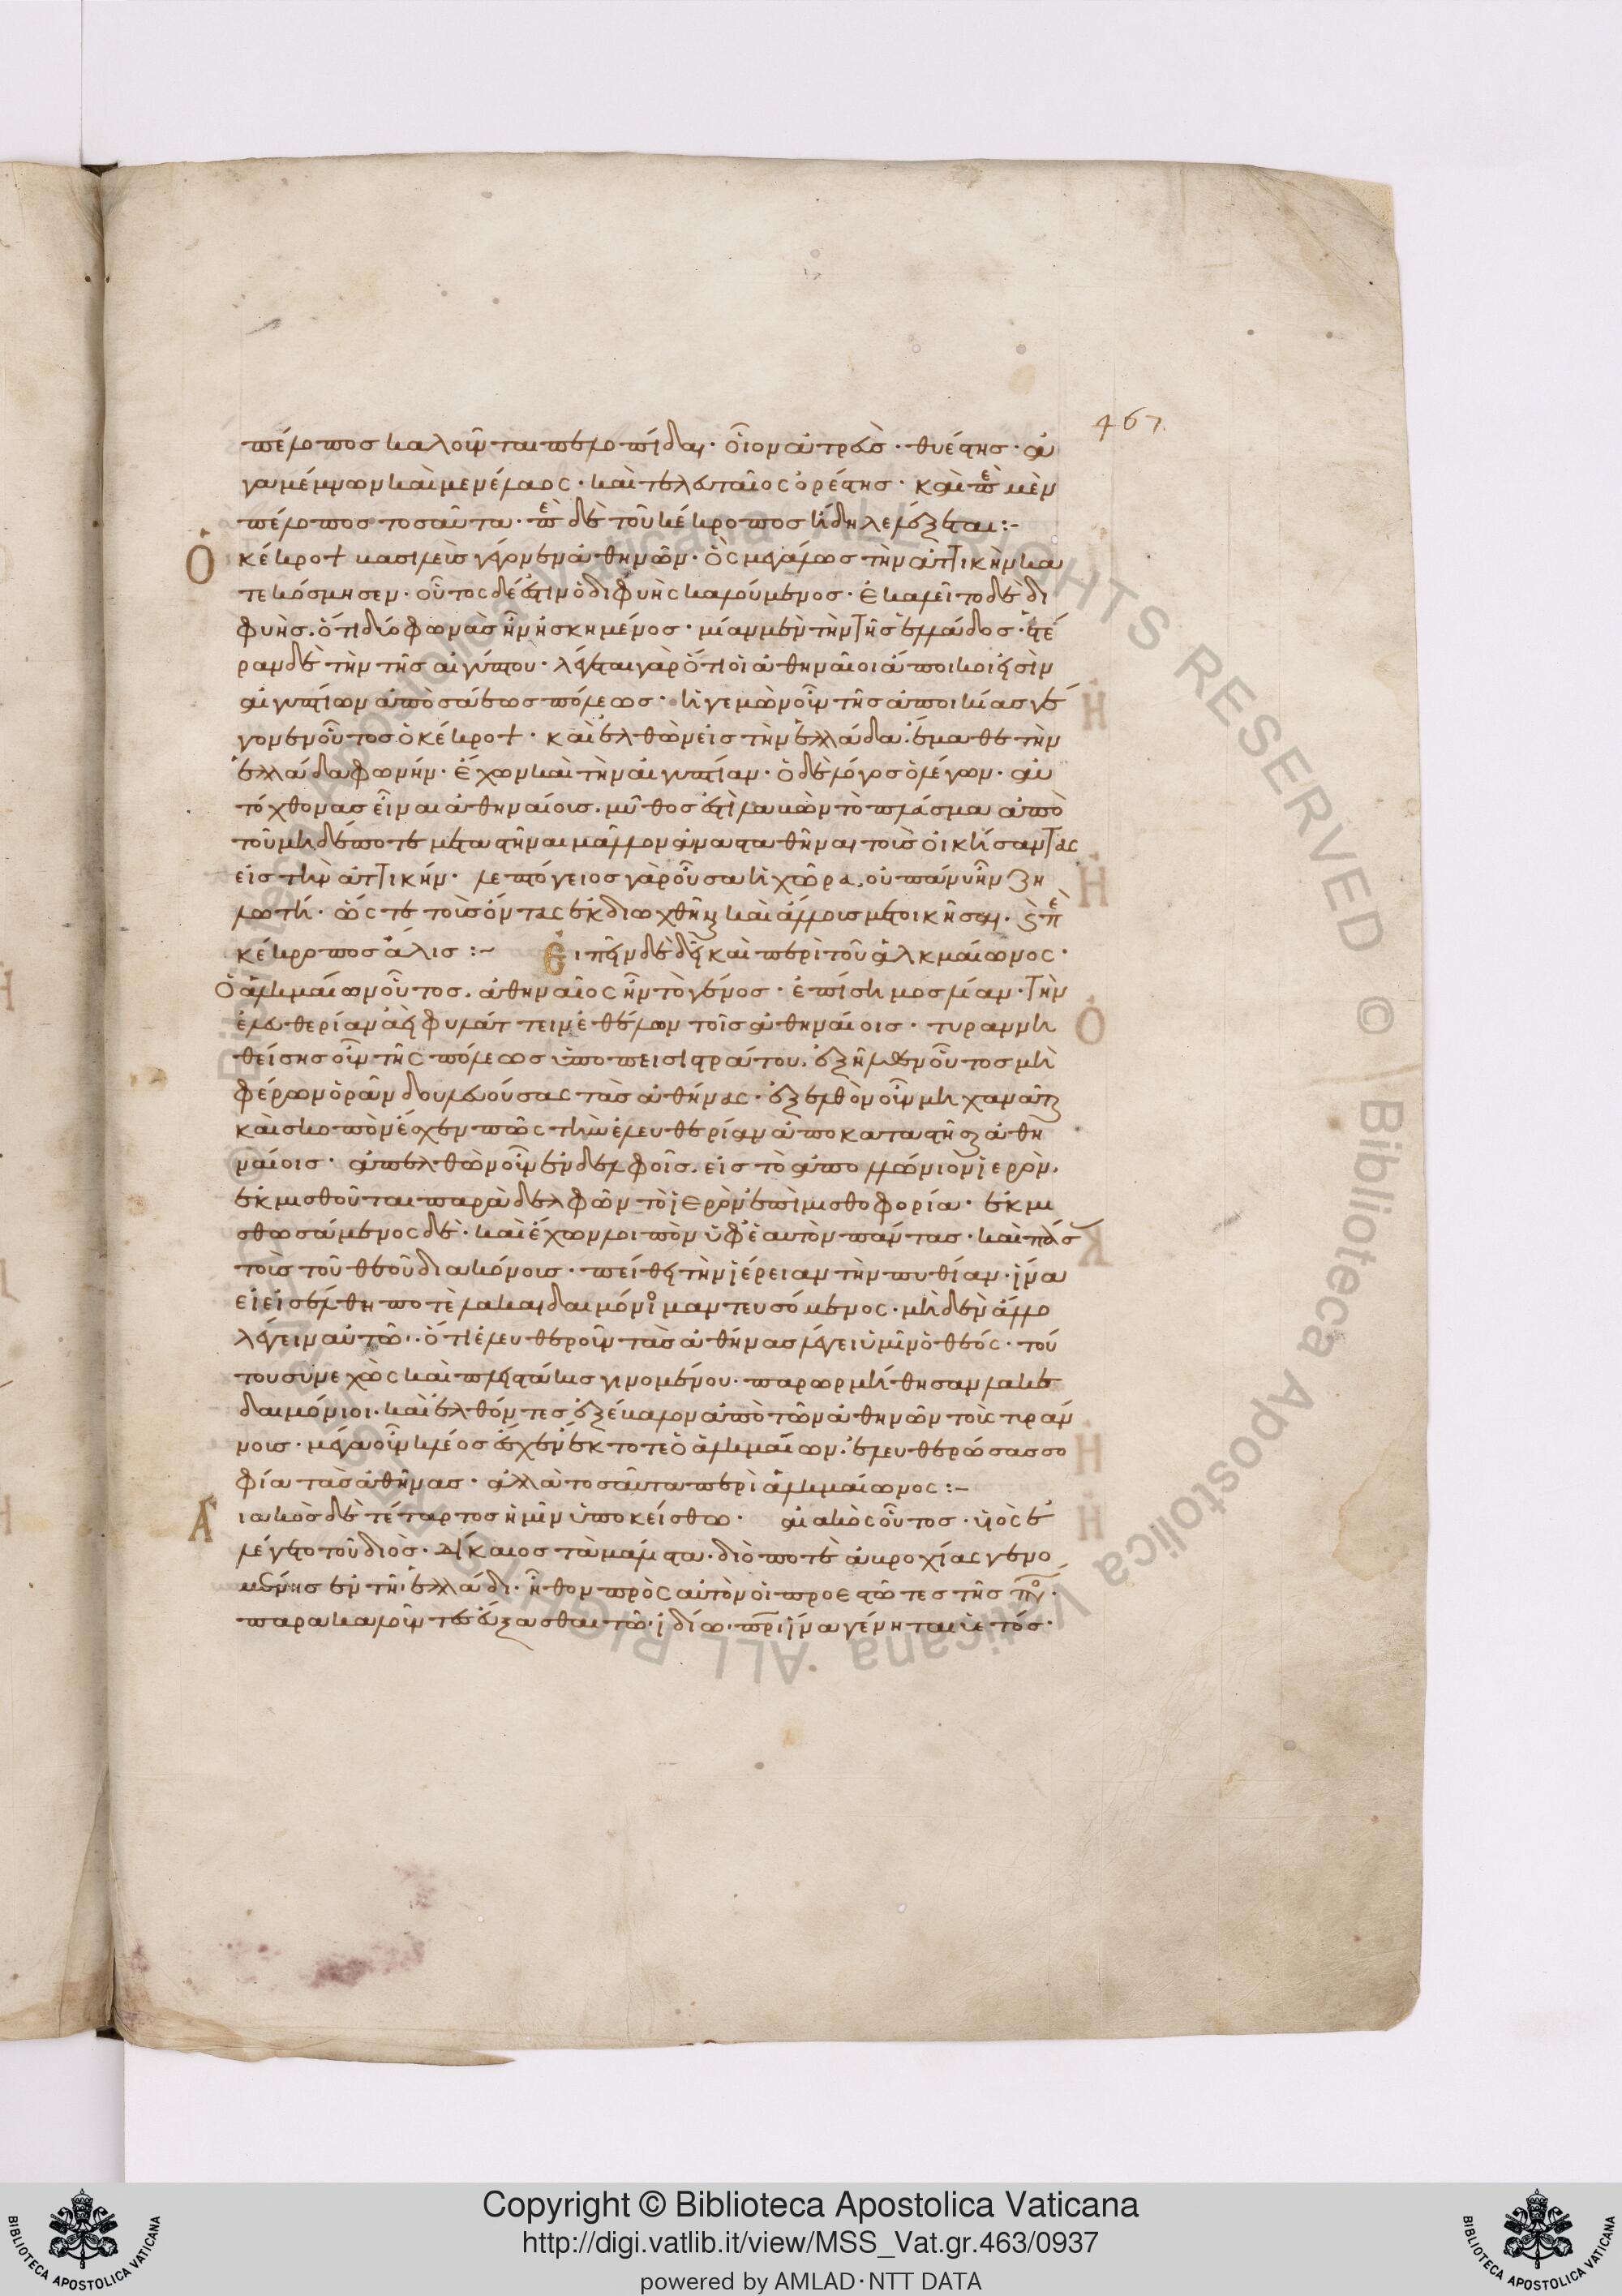 467
πέλοπος καλοῦνται πελοπίδαι· οἷον ἀτρεὺς· θυέστης· ἀ
γαμέμνων καὶ μενέλαος· καὶ τελευταῖος ὀρέστης· καὶ περὶ μὲν
πέλοπος τοσαῦτα· περὶ δὲ τοῦ κέκροπος ἤδη λελέξεται:-
Ὁ κέκροψ βασιλεὺς γέγονεν ἀθηνῶν· ὃς μεγάλως τὴν ἀττικὴν κα
τεκόσμησεν· οὗτος δέ ἐστιν ὁ διφυὴς καλούμενος· ἐκαλεῖτο δὲ δι
φυὴς· ὅτι δύο φωνὰς ἦν ἠσκημένος· μίαν μὲν τὴν τῆς ἑλλάδος· ἑτέ
ραν δὲ τὴν τῆς αἰγύπτου· λέγεται γὰρ ὅτι οἱ ἀθηναῖοι ἄποικοί εἰσιν
αἰγυπτίων ἀπὸ σάεως πόλεως· ἡγεμὼν οὖν τῆς ἀποικίας γέ
γονεν οὗτος ὁ κέκροψ· καὶ ἐλθὼν εἰς τὴν ἑλλάδα· ἔμαθε τὴν
ἑλλάδα φωνήν· ἔχων καὶ τὴν αἰγυπτίαν· ὁ δὲ λόγος ὁ λέγων· αὐ
τόχθονας εἶναι ἀθηναίοις· μῦθος ἐστὶ λαβὼν τὸ πλάσμα ἀπὸ
τοῦ μηδέποτε μεταστῆναι μᾶλλον ἀναστατωθῆναι τοὺς οἰκήσαντας
εἰς τὴν ἀττικήν· λεπτόγειος γὰρ οὖσα ἡ χώρα, οὐ πάνυ ἦν ζη
λωτὴ· ὥστε τοὺς ὄντας ἐκδιωχθῆναι καὶ ἄλλους μετοικῆσαι· καὶ περὶ
κέκροπος ἅλις:~ Εἰπεῖν δὲ δεῖ καὶ περὶ τοῦ ἀλκμαίωνος·
Ὁ ἀλκμαίων οὗτος· ἀθηναῖος ἦν τὸ γένος· ἐπίσημος λίαν· τὴν
ἐλευθερίαν ἀεὶ φυλάττειν ἐθέλων τοῖς ἀθηναίοις· τυραννη
θείσης οὖν τῆς πόλεως ὑπὸ πεισιστράτου· ἐξῆλθεν οὗτος μὴ
φέρων ὁρᾶν δουλευούσας τὰς ἀθήνας· ἐξελθὸν οὖν μηχανᾶται
καὶ σκοπὸν ἔσχεν πῶς τὴν ἐλευθερίαν ἀποκαταστῆσαι ἀθη
ναίοις· ἀπελθὼν οὖν ἐν δελφοῖς· εἰς τὸ ἀπολλώνιον ἱερὸν·
ἐκμισθοῦται παρὰ δελφῶν τὸ ἱερὸν ἐπὶ μισθοφορία· ἐκμι
σθωσάμενος δὲ· καὶ ἔχων λοιπὸν ὑφ' ἑαυτὸν πάντας· καὶ
τοὺς τοῦ θεοῦ διακόνους· πείθει τὴν ἱέρειαν τὴν πυθίαν· ἵνα
εἰ εἰσέλθη ποτὲ λακαιδαιμόνιος μαντευσόμενος· μηδὲν ἄλλο
λέγειν αὐτῶ· ὅτι ἐλευθεροῦν τὰς ἀθήνας λέγει ὑμῖν ὁ θεός· τού
του συνεχῶς καὶ πλειστάκις γινομένου· παρωρμήθησαν λακε
δαιμόνιοι· καὶ ἐλθόντες ἐξέβαλον ἀπὸ τῶν ἀθηνῶν τοὺς τυράν
νους· μέγα οὖν κλέος ἔσχεν ἔκτοτε ὁ ἀλκμαίων· ἐλευθερώσας σο
φία τὰς ἀθήνας· ἀλλὰ τοσαῦτα περὶ ἀλκμαίωνος:-
Αἰακὸς δὲ τέταρτος ἡμῖν ὑποκείσθω· αἰακὸς οὗτος· υἱὸς ἐ
λέγετο τοῦ διὸς· δίκαιος τὰ μάλιστα· διό ποτε ἀβροχίας γενο
μένης ἐν τῆ ἑλλάδι· ἦλθον πρὸς αὐτὸν οἱ προεστῶτες τῆς
παρακαλοῦντες εὔξασθαι τῶ ἰδίω πατρὶ ἵνα γένηται ὑετός·
Copyright © Biblioteca Apostolica Vaticana
http://digi.vatlib.it/view/MSS_Vat.gr.463/0937
powered by AMLAD·NTT DATA